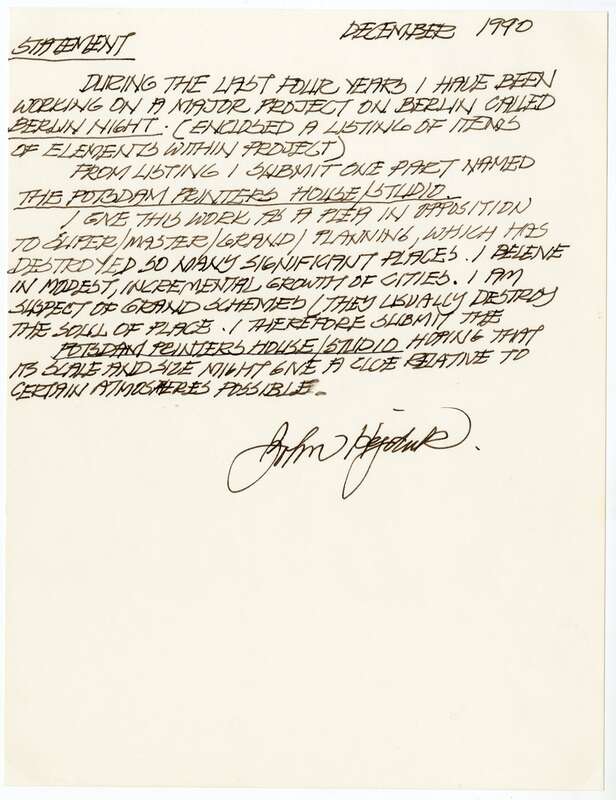 DECEMBER 1990
STATEMENT
DURING THE LAST FOUR YEARS I HAVE BEEN
WORKING ON A MAJOR PROJECT ON BERLIN CALLED
BERLIN NIGHT. (ENCLOSED A LISTING OF ITEMS
OF ELEMENTS WITHIN PROJECT)
FROM LISTING I SUBMIT ONE PART NAMED
THE POTSDAM PRINTERS HOUSE/STUDIO.
I GIVE THIS WORK AS A PLEA IN OPPOSITION
TO SUPER/MASTER/GRAND/ PLANNING, WHICH HAS
DESTROYED SO MANY SIGNIFICANT PLACES. I BELIEVE
IN MODEST, INCREMENTAL GROWTH OF CITIES. I AM
SUSPECT OF GRAND SCHEMES/THEY USUALLY DESTROY
THE SOUL OF PLACE. I THEREFORE SUBMIT THE
POTSDAM PRINTERS HOUSE/STUDIO HOPING THAT
ITS SCALE AND SIZE MIGHT GIVE A CLUE RELATIVE TO
CERTAIN ATMOSHERES POSSIBLE.
John Hejduk.